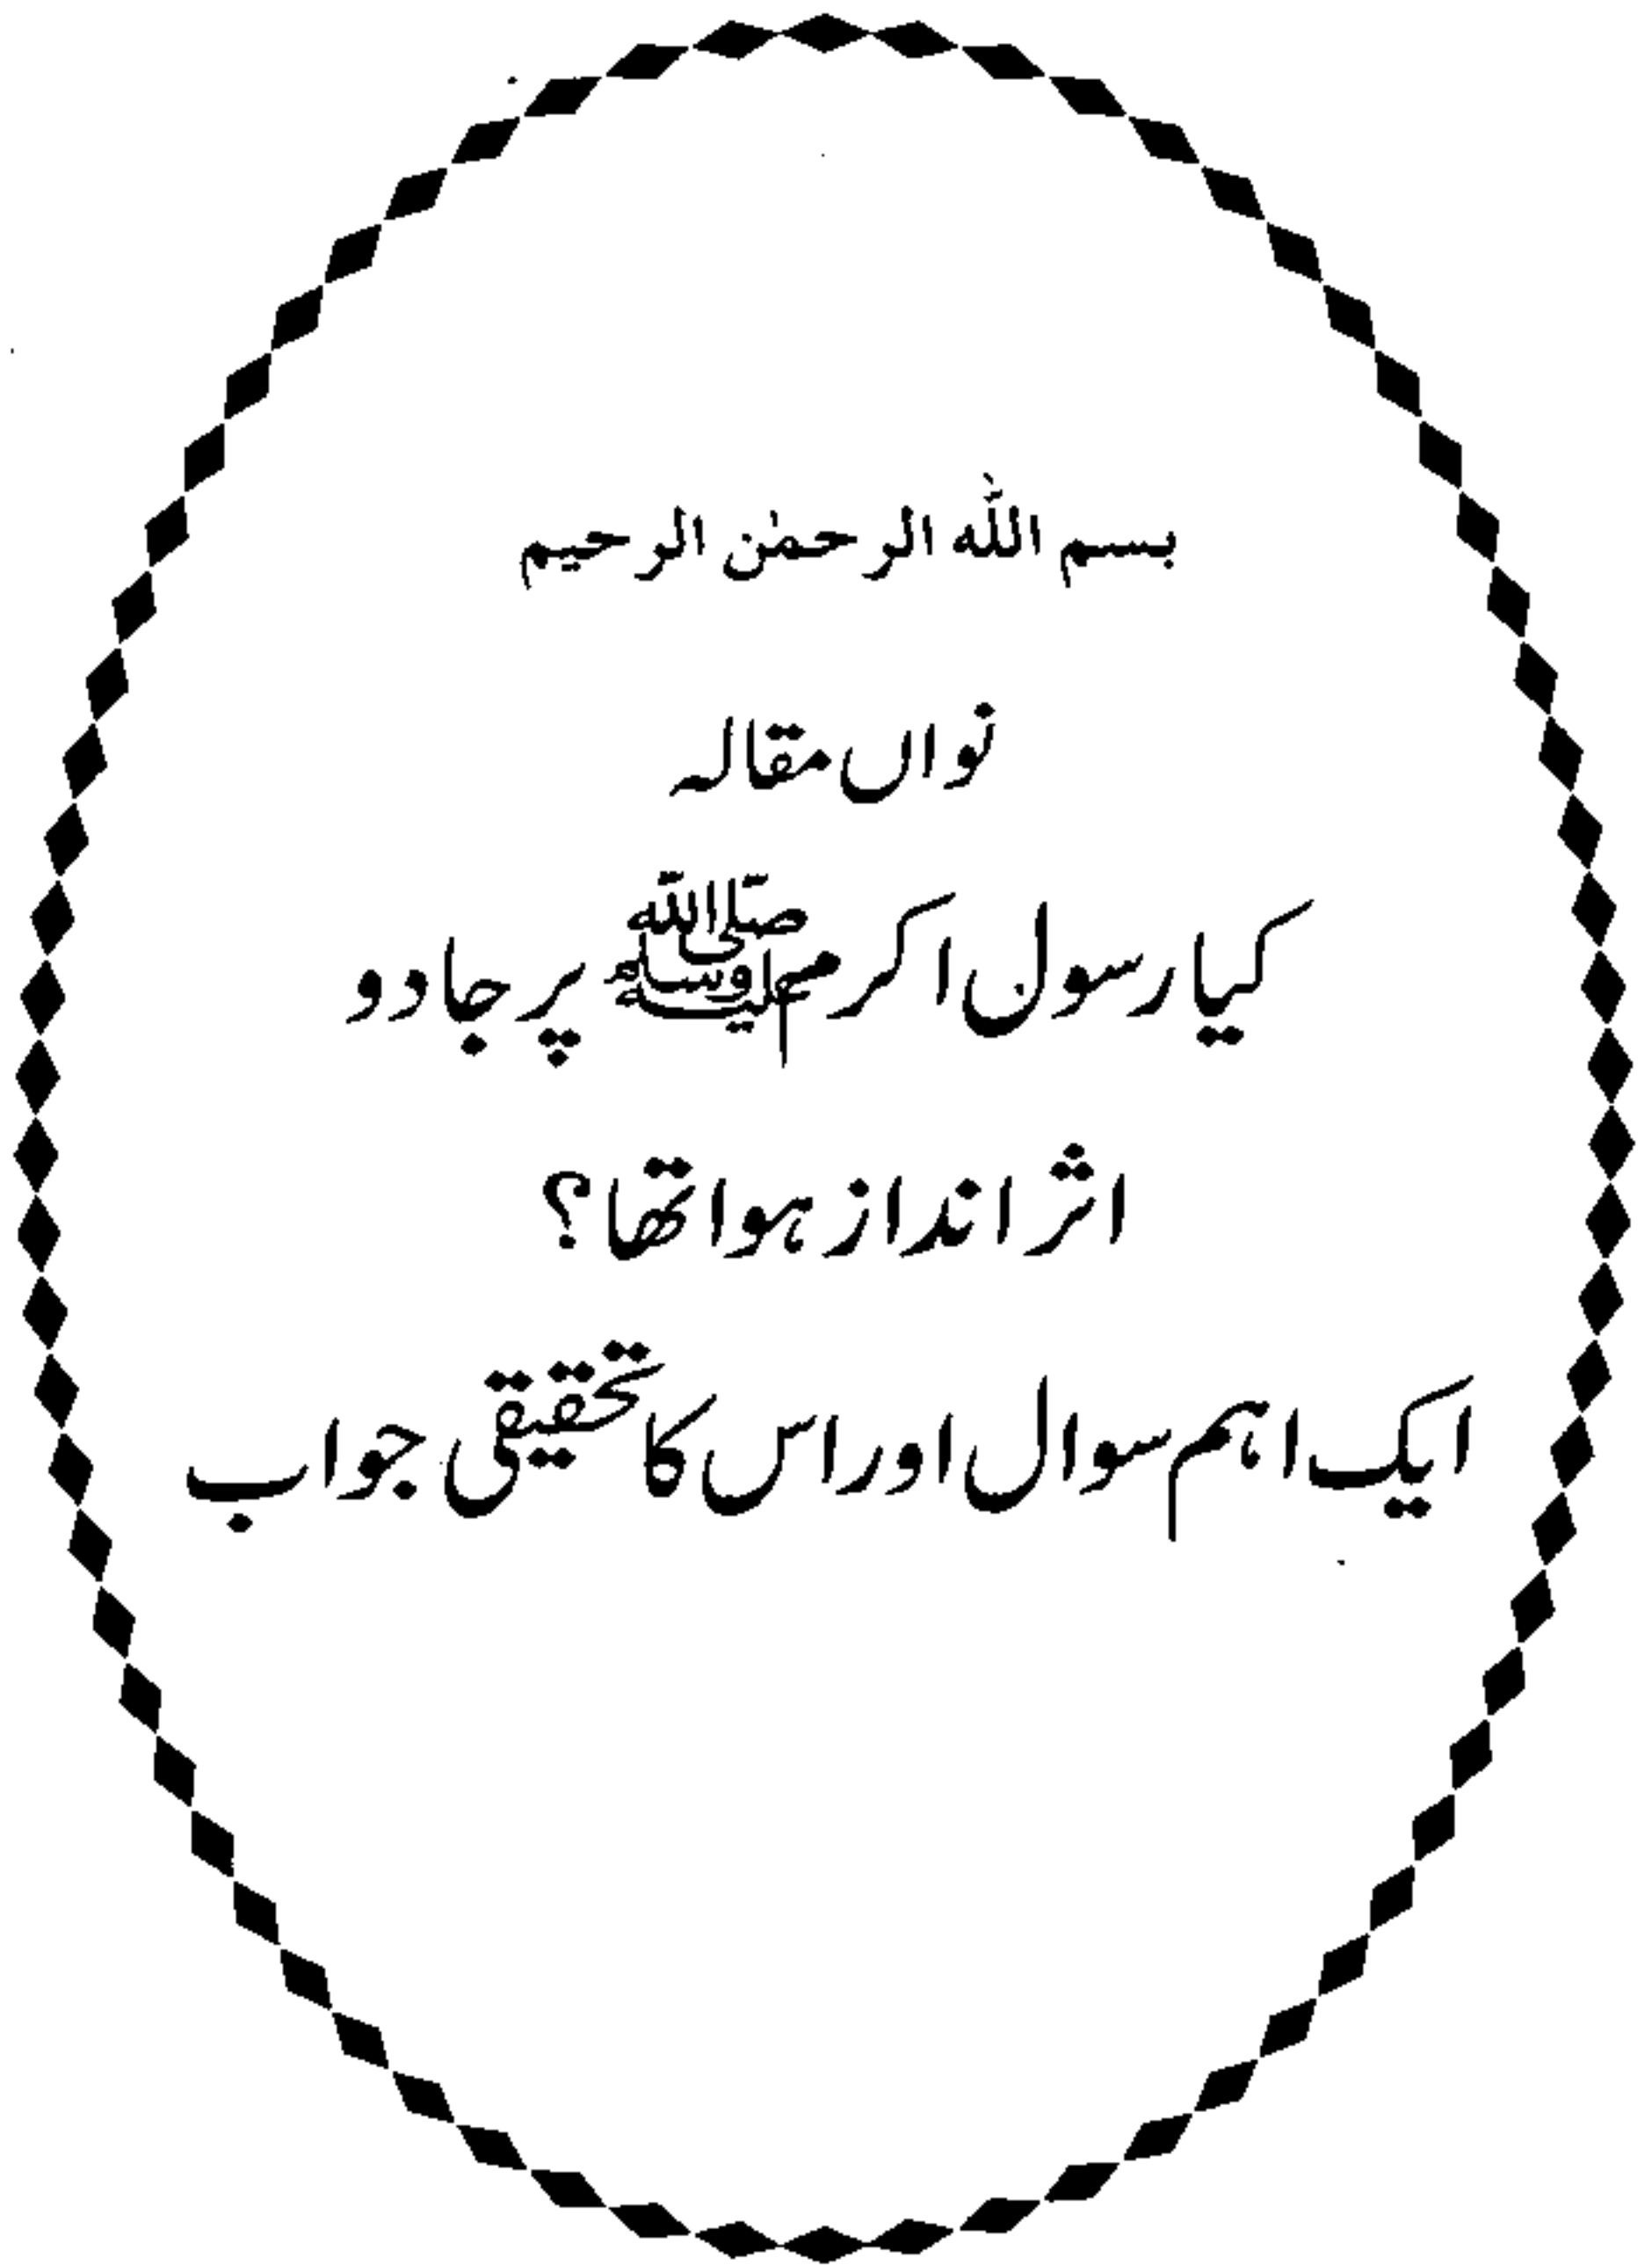 بسم اللہ الرحمٰن الرحیم
نواں مقالہ
کیا رسول اکرم ﷺ پر جادو
اثر انداز ہوا تھا؟
ایک اہم سوال اور اس کا تحقیقی جواب